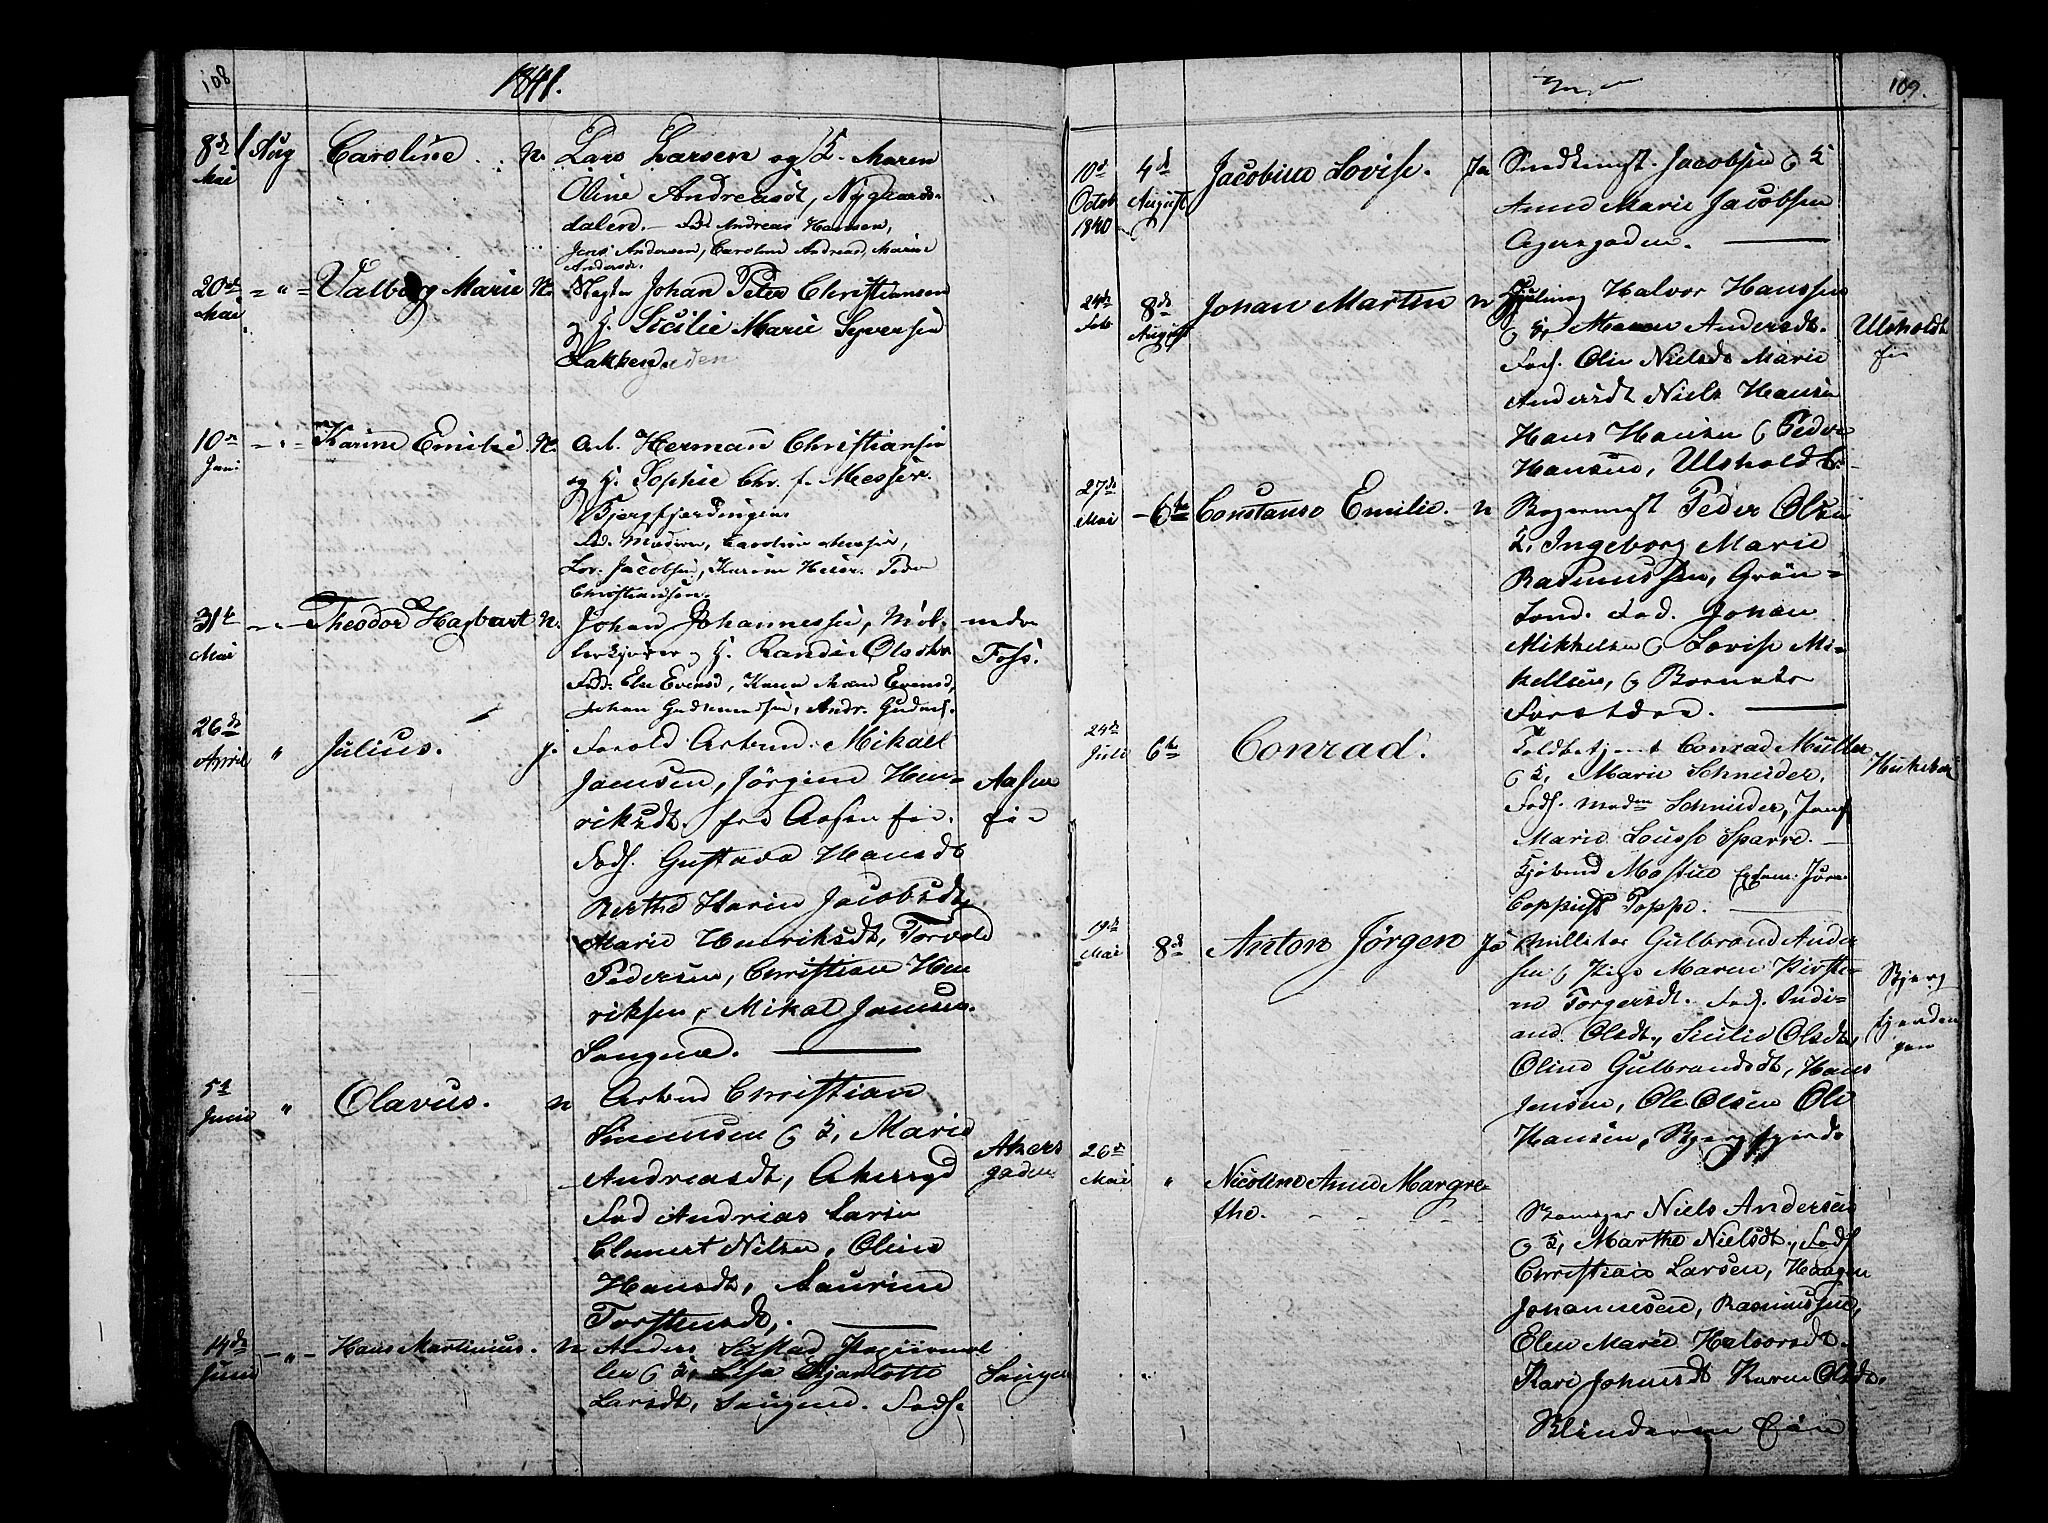 108
1841.
8de Mai
1 Aug
Caroline
N.
Lars Larsen og K. Maren
Oline Andreasdt, Nygaards-
dalen. Fad. Andreas Hansen,
Jens Andersen, Caroline Andreas, Marie
Andersdt.
20de Mai
Valborg Marie
N.
Johan Peter Christiansen
og H. Sicilie Marie Syversen
Lakkegaden
10de Juni
Karine Emilie
N.
Arb. Herman Christiansen
og H. Sophie Chr. f. Messer.
Bjergfjerdingen
Fad. Madm, Caroline
Lov. Jacobsen, Karine Messr. Peder
Christiansen.
31te Mai
Theodor Hagbart
N.
Johan Johannessen, Møl-
lerkjører og H. Randi Olsdtr
Fad. Else Evensd, Karen Evensd,
Johan Gudmundsen, Andr. Gudm.
nedre
Foss.
26de April
Julius.
j.
Forlod Arbmd. Mikael
Jansen, Jørgine Hen-
riksdt. fra Aasen fie.
Fads. Gustava Hansdt
Berthe Karin Jacobsdt,
Marie Henriksdt, Torvald
Pedersen, Christian Hen
riksen, Mikal Jansen.
Saugene.
Aasen
fie
5te Junii
Olavus.
N
Arbmd Christian
Simensen & K, Marie
Andreasdt, Akersgd
Fad Andreas Larsen
Clement Nilsen, Oline
Hansdt, Laurine
Torstensdt,.
Akers
gaden
14de Junii
Hans Martinius.
N
Anders
ler & K, Lisa Charlotte
Larsdt, Saugene. Fads.
Saugen
109.
10de Octob 1840
4de August
Jacobine Lovise.
Ja
Snedkermst. Jacobsen & K
Anne Marie Jacobsen
Agersgaden.
24de Feb
8de August
Johan Martin
N
Halvor Hanssen
& K, Maren Andersdt.
Fads. Olia Nielsdt Marie
Andersdt Niels Hansen
Hans Hansen & Peder
Hansen, Ulsholdt
Ulsholdt
fie
27de Mai
6te
Constanse Emilie.
N
Bogermest Peder Olsen
K, Ingeborg Marie
Rasmussen, Grøn-
land. Fad. Johan
Mikkelsen & Lovise Mi-
kellsen, & Barnets
Foreldre.
24de Juli
6te
Conrad.
Toldbetjent Conrad Müller
& K, Marie Schneider.
Fads. Madm Schneider, Jomf
Marie Lousse Sparre.
Kjøbmd
Toppe.
19de Mai
8de
Anton Jørgen
Ja
Gulbrand Ander
sen & Pige Maren Kirsti-
ne Torgersdt. Fads.
Olsdt, Sicilie Olsdt,
Oline Gulbrandsdt, Hans
Jensen, Ole Olsen Ole
Hansen, Bjergfjerd.
Bjerg
fjerdin
gen
26de Mai
Nicoline Anne Margre-
the.
Niels Andersen
& K, Marthe Nielsdt, Fads
Christian Larsen, Haagen
Johannesen, Rasmussen,
Elen Marie Halvorsdt.
Kari Johnsdt Karen Olsdt.
Blinderen